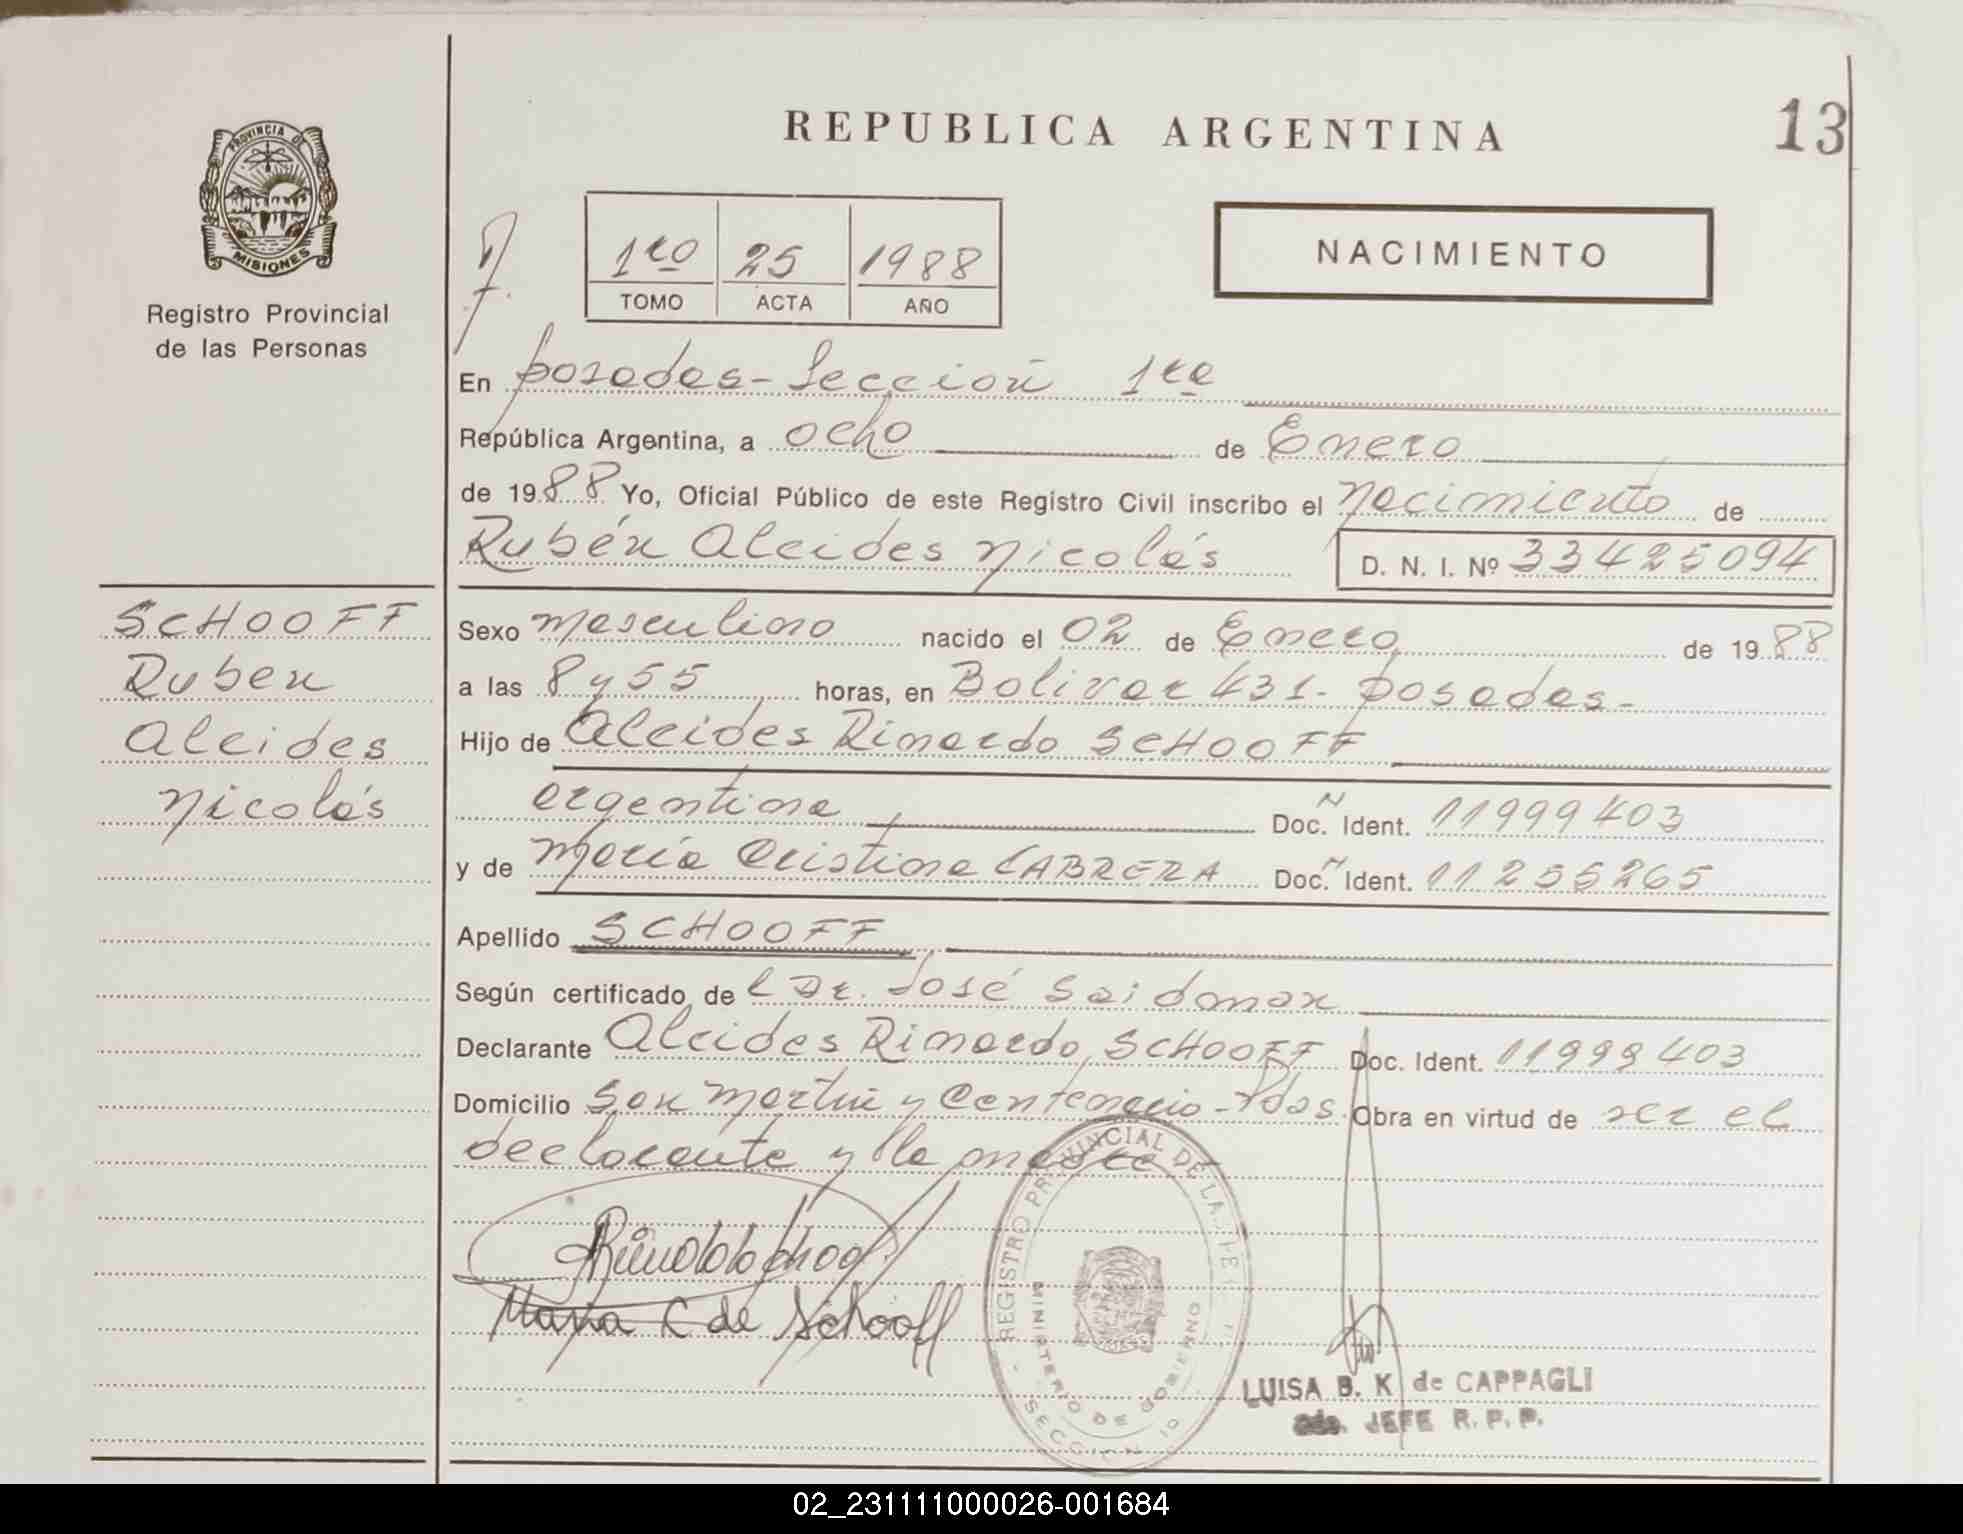 REPUBLICA ARGENTINA
13
PROVINCIA DE
MISIONES
Registro Provincial
de las Personas
1ro 25 1988
TOMO ACTA AÑO
NACIMIENTO
En Posadas - Sección 1ra
República Argentina, a ocho de Enero
de 1988 Yo, Oficial Público de este Registro Civil inscribo el Nacimiento de
Rubén Alcides Nicolás D. N. I. Nº 33425094
SCHOOFF
Ruben
Alcides
Nicolás
Sexo masculino nacido el 02 de Enero de 1988
a las 8 y 55 horas, en Bolivar 431 - Posadas -
Hijo de Alcides Rinardo SCHOOFF
argentina Doc. Ident. 11999403
y de María Cristina CABRERA Doc. Ident. 11255265
Apellido SCHOOFF
Según certificado de l Dr. José Saidman
Declarante Alcides Rinardo SCHOOFF Doc. Ident. 11999403
Domicilio San Martín y Centenario - Pdas. Obra en virtud de ser el
declarante y la madre
Maria C de Schooff
REGISTRO PROVINCIAL DE LA
MINISTERIO DE GOBIERNO
SECCION
LUISA B. K. de CAPPAGLI
JEFE R. P. P.
02_231111000026-001684